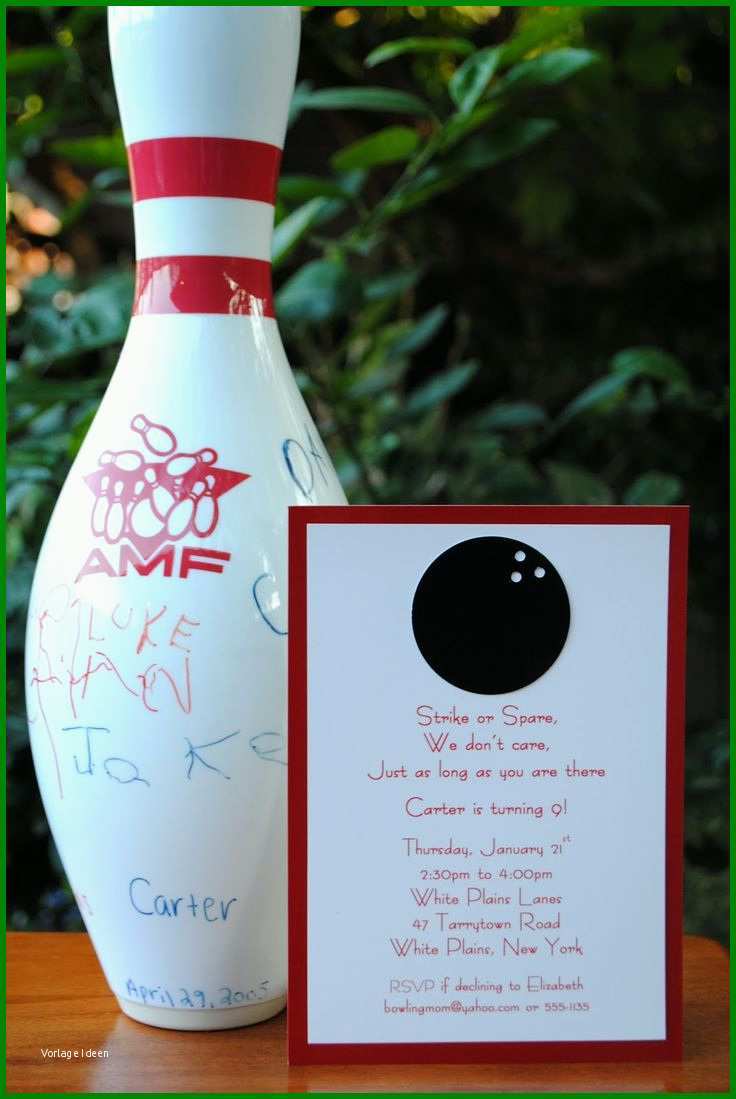 AMF
LUKE
JaKe
Carter
April 29, 2005
Strike or Spare,
We don't care,
Just as long as you are there
Carter is turning 9!
Thursday, January 21st
2:30pm to 4:00pm
White Plains Lanes
47 Tarrytown Road
White Plains, New York
RSVP if declining to Elizabeth
bowlingmom@yahoo.com or 555-1135
Vorlage Ideen